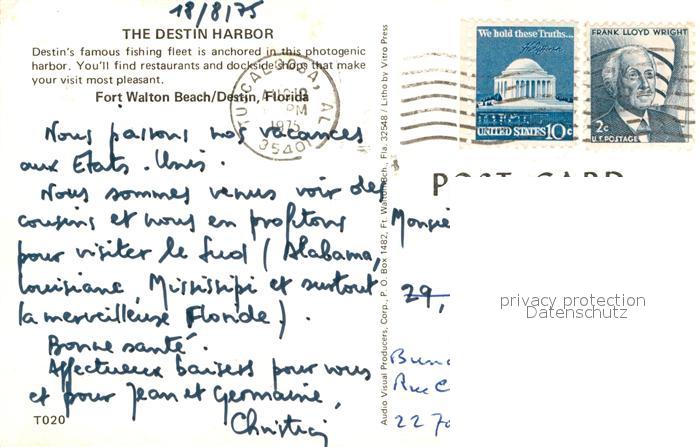 18/8/75
THE DESTIN HARBOR
Destin's famous fishing fleet is anchored in this photogenic
harbor. You'll find restaurants and dockside shops that make
your visit most pleasant.
Fort Walton Beach/Destin, Florida
Nous passons nos vacances
aux Etats-Unis.
Nous sommes venus voir des
cousins et nous en profitons
pour visiter le Sud (Alabama,
Louisiane, Mississipi et surtout
la merveilleuse Floride).
Bonne santé.
Affectueux baisers pour vous
et pour Jean et Germaine,
Christian
T020
Audio Visual Producers, Corp., P. O. Box 1482, Ft. Walton Bch., Fla. 32548 / Litho by Vitro Press
TUSCALOOSA, AL
PM
1975
35401
We hold these Truths...
UNITED STATES 10c
FRANK LLOYD WRIGHT
2c
U.S. POSTAGE
POST CARD
Monsie
29,
privacy protection
Datenschutz
Rue C
22 70